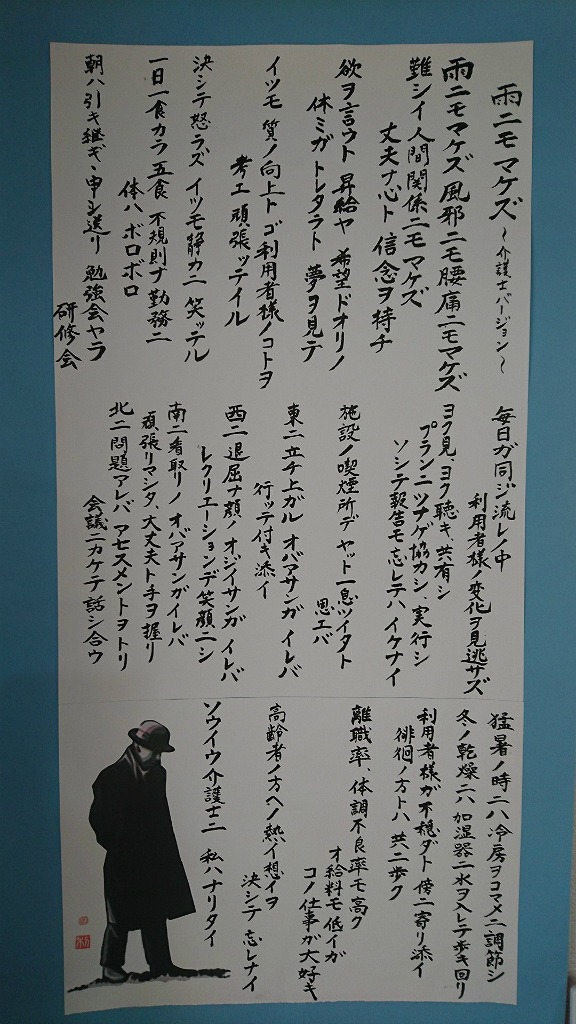 雨ニモマケズ ～介護士バージョン～
雨ニモマケズ風邪ニモ腰痛ニモマケズ
難シイ人間関係ニモマケズ
丈夫ナ心ト信念ヲ持チ
欲ヲ言ウト 昇給ヤ 希望ドオリノ
体ミガトレタラト 夢ヲ見テ
イツモ 質ノ向上ト ゴ利用者様ノコトヲ
考エ 頑張ッテイル
決シテ怒ラズ イツモ静カニ 笑ッテル
一日一食カラ五食 不規則ナ勤務ニ
体ハ ボロボロ
朝ハ引キ継ギ・申シ送リ 勉強会ヤラ
研修会
毎日ガ同ジ流レノ中
利用者様ノ変化ヲ見逃サズ
ヨク見、ヨク聴キ、共有シ
プランニツナゲ協力シ、実行シ
ソシテ報告モ忘レテハイケナイ
施設ノ喫煙所デ ヤット一息ツイタト
思エバ
東ニ立チ上ガル オバアサンガ イレバ
行ッテ付キ添イ
西ニ退屈ナ顔ノ オジイサンガ イレバ
レクリエーションデ笑顔ニシ
南ニ看取リノ オバアサンガイレバ
頑張リマシタ、大丈夫ト手ヲ握リ
北ニ問題アレバ アセスメントヲトリ
会議ニカケテ話シ合ウ
猛暑ノ時ニハ冷房ヲコマメニ調節シ
冬ノ乾燥ニハ加湿器ニ水ヲ入レテ歩キ回リ
利用者様ガ不穏ダト 傍ニ寄リ添イ
徘徊ノ方トハ 共ニ歩ク
離職率 体調不良率モ高ク
オ給料モ低イガ
コノ仕事ガ大好キ
高齢者ノ方ヘノ熱イ想イヲ
決シテ忘レナイ
ソウイウ介護士ニ 私ハナリタイ